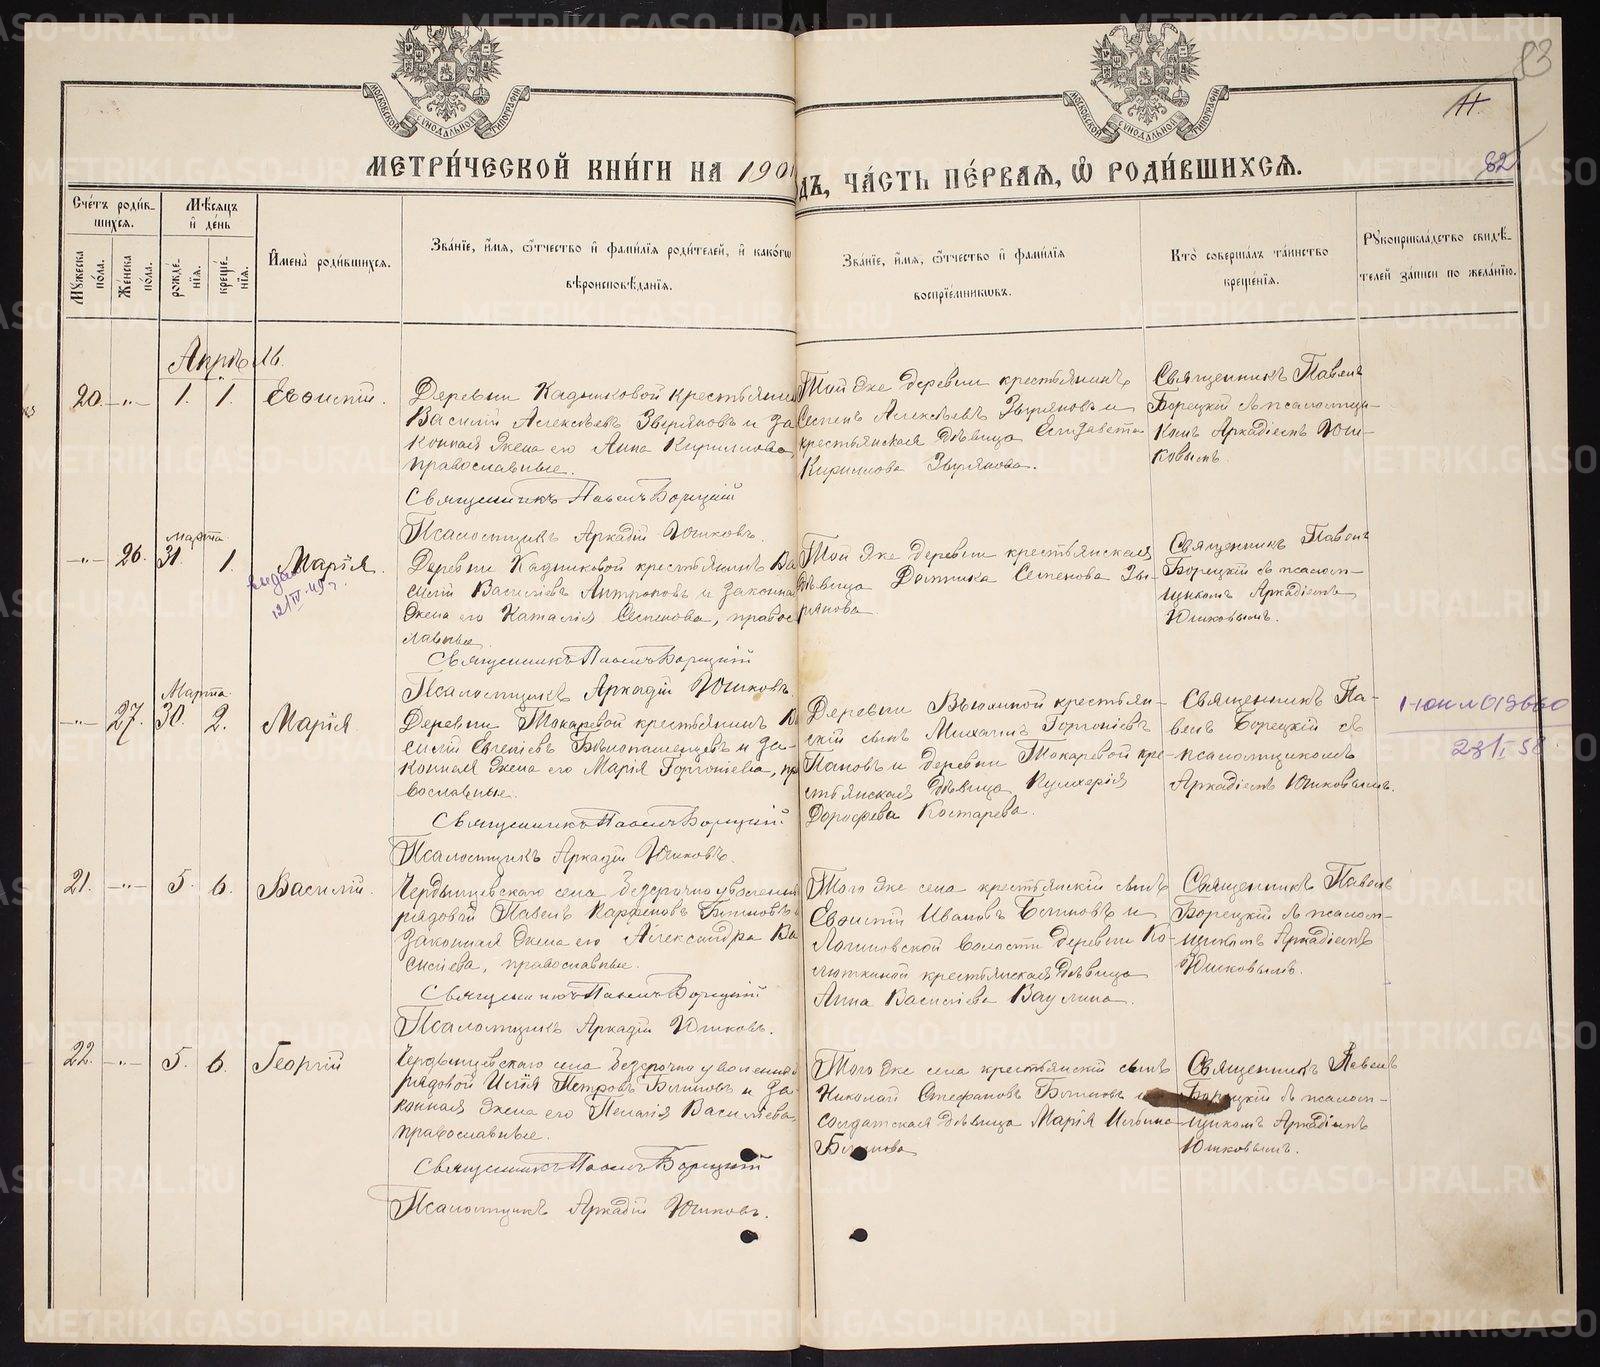 МЕТРИ́ЧЕСКОЙ КНИ́ГИ НА 190
ДЪ, ЧА́СТЬ ПЕ́РВАѦ, Ѡ҆ РОДИ́ВШИХСѦ.
83
11.
82
МОСКОВСКОЙ СѴНОДАЛЬНОЙ ТИПОГРАФІИ
МОСКОВСКОЙ СѴНОДАЛЬНОЙ ТИПОГРАФІИ
Сче́тъ роди́в-
шихсѧ.
Мѣ́сѧцъ
и҆ де́нь
Мꙋ́жеска по́ла.
Же́нска по́ла.
рожде́нїѧ.
креще́нїѧ.
И҆мена̀ роди́вшихсѧ.
Зва́нїе, и҆́мѧ, ѻ҆́тчество и҆ фамилїѧ роди́телей, и҆ како́гѡ
вѣроисповѣ́данїѧ.
Зва́нїе, и҆́мѧ, ѻ҆́тчество и҆ фами́лїѧ
воспрїе́мникѡвъ.
Кто̀ соверша́лъ та́инство
креще́нїѧ.
Рꙋкоприкла́дство свидѣ́-
телей за́писи по жела́нїю.
Апрѣль.
20. -„- 1. 1. Евоистій.
Деревни Кадниковой крестьянинъ
Василій Алексѣевъ Звѣряновъ и за
конная жена его Анна Кириллова
православные.
Священникъ Павелъ Борецкій
Псаломщикъ Аркадій Юшковъ.
Той же деревни крестьянинъ
Семенъ Алексѣевъ Зыряновъ и
крестьянская дѣвица Елизавета
Кириллова Зырянова.
Священникъ Павелъ
Борецкій съ псаломщи-
комъ Аркадіемъ Юш-
ковымъ.
Марта
-„- 26. 31. 1. Марія.
12/IV-49 г.
Деревни Кадниковой крестьянинъ Ва
силій Васильевъ Антроповъ и законна
жена его Наталія Семенова, правос
лавные
Священникъ Павелъ Борецкій
Псаломщикъ Аркадій Юшковъ
Той же деревни крестьянская
дѣвица Домника Семенова Зы-
рянова
Священникъ Павелъ
Борецкій съ псалом-
щикомъ Аркадіемъ
Юшковымъ.
Марта
-„- 27. 30. 2. Марія
Деревни Токаревой крестьянинъ Ва
силій Евгеніевъ Бѣлопашенцевъ и за-
конная жена его Марія Горгоніева, пр
вославные.
Священникъ Павелъ Борецкій
Псаломщикъ Аркадій Юшковъ.
Деревни крестьян-
скій сынъ Михаилъ Горгоніевъ
Пановъ и деревни Токаревой кре-
стьянская дѣвица Пулхерія
Дорофеева Костарева.
Священникъ Па-
велъ Борецкій съ
псаломщикомъ
Аркадіемъ Юшковымъ.
23/I 58
21. -„- 5. 6. Василій.
Чердынцевскаго села безсрочно уволенный
рядовой Павелъ Парфеновъ Блиновъ и
законная жена его Александра Ва
сильева, православные.
Священникъ Павелъ Борецкій
Псаломщикъ Аркадій Юшковъ.
Того же села крестьянскій сынъ
Евоистій Ивановъ Блиновъ и
Логиновской волости деревни Ко-
лоткиной крестьянская дѣвица
Анна Васильева Ваулина.
Священникъ Павелъ
Борецкій съ псалом-
щикомъ Аркадіемъ
Юшковымъ.
22. -„- 5. 6. Георгій
Чердынцевскаго села безсрочно уволенный
рядовой Илія Петровъ Блиновъ и за-
конная жена его Пелагія Васильева,
православные.
Священникъ Павелъ Борецкій
Псаломщикъ Аркадій Юшковъ.
Того же села крестьянскій сынъ
Николай Стефановъ Блиновъ и
солдатская дѣвица Марія Ильина
Блинова
Священникъ Павелъ
Борецкій съ псалом-
щикомъ Аркадіемъ
Юшковымъ.
METRIKI.GASO-URAL.RU